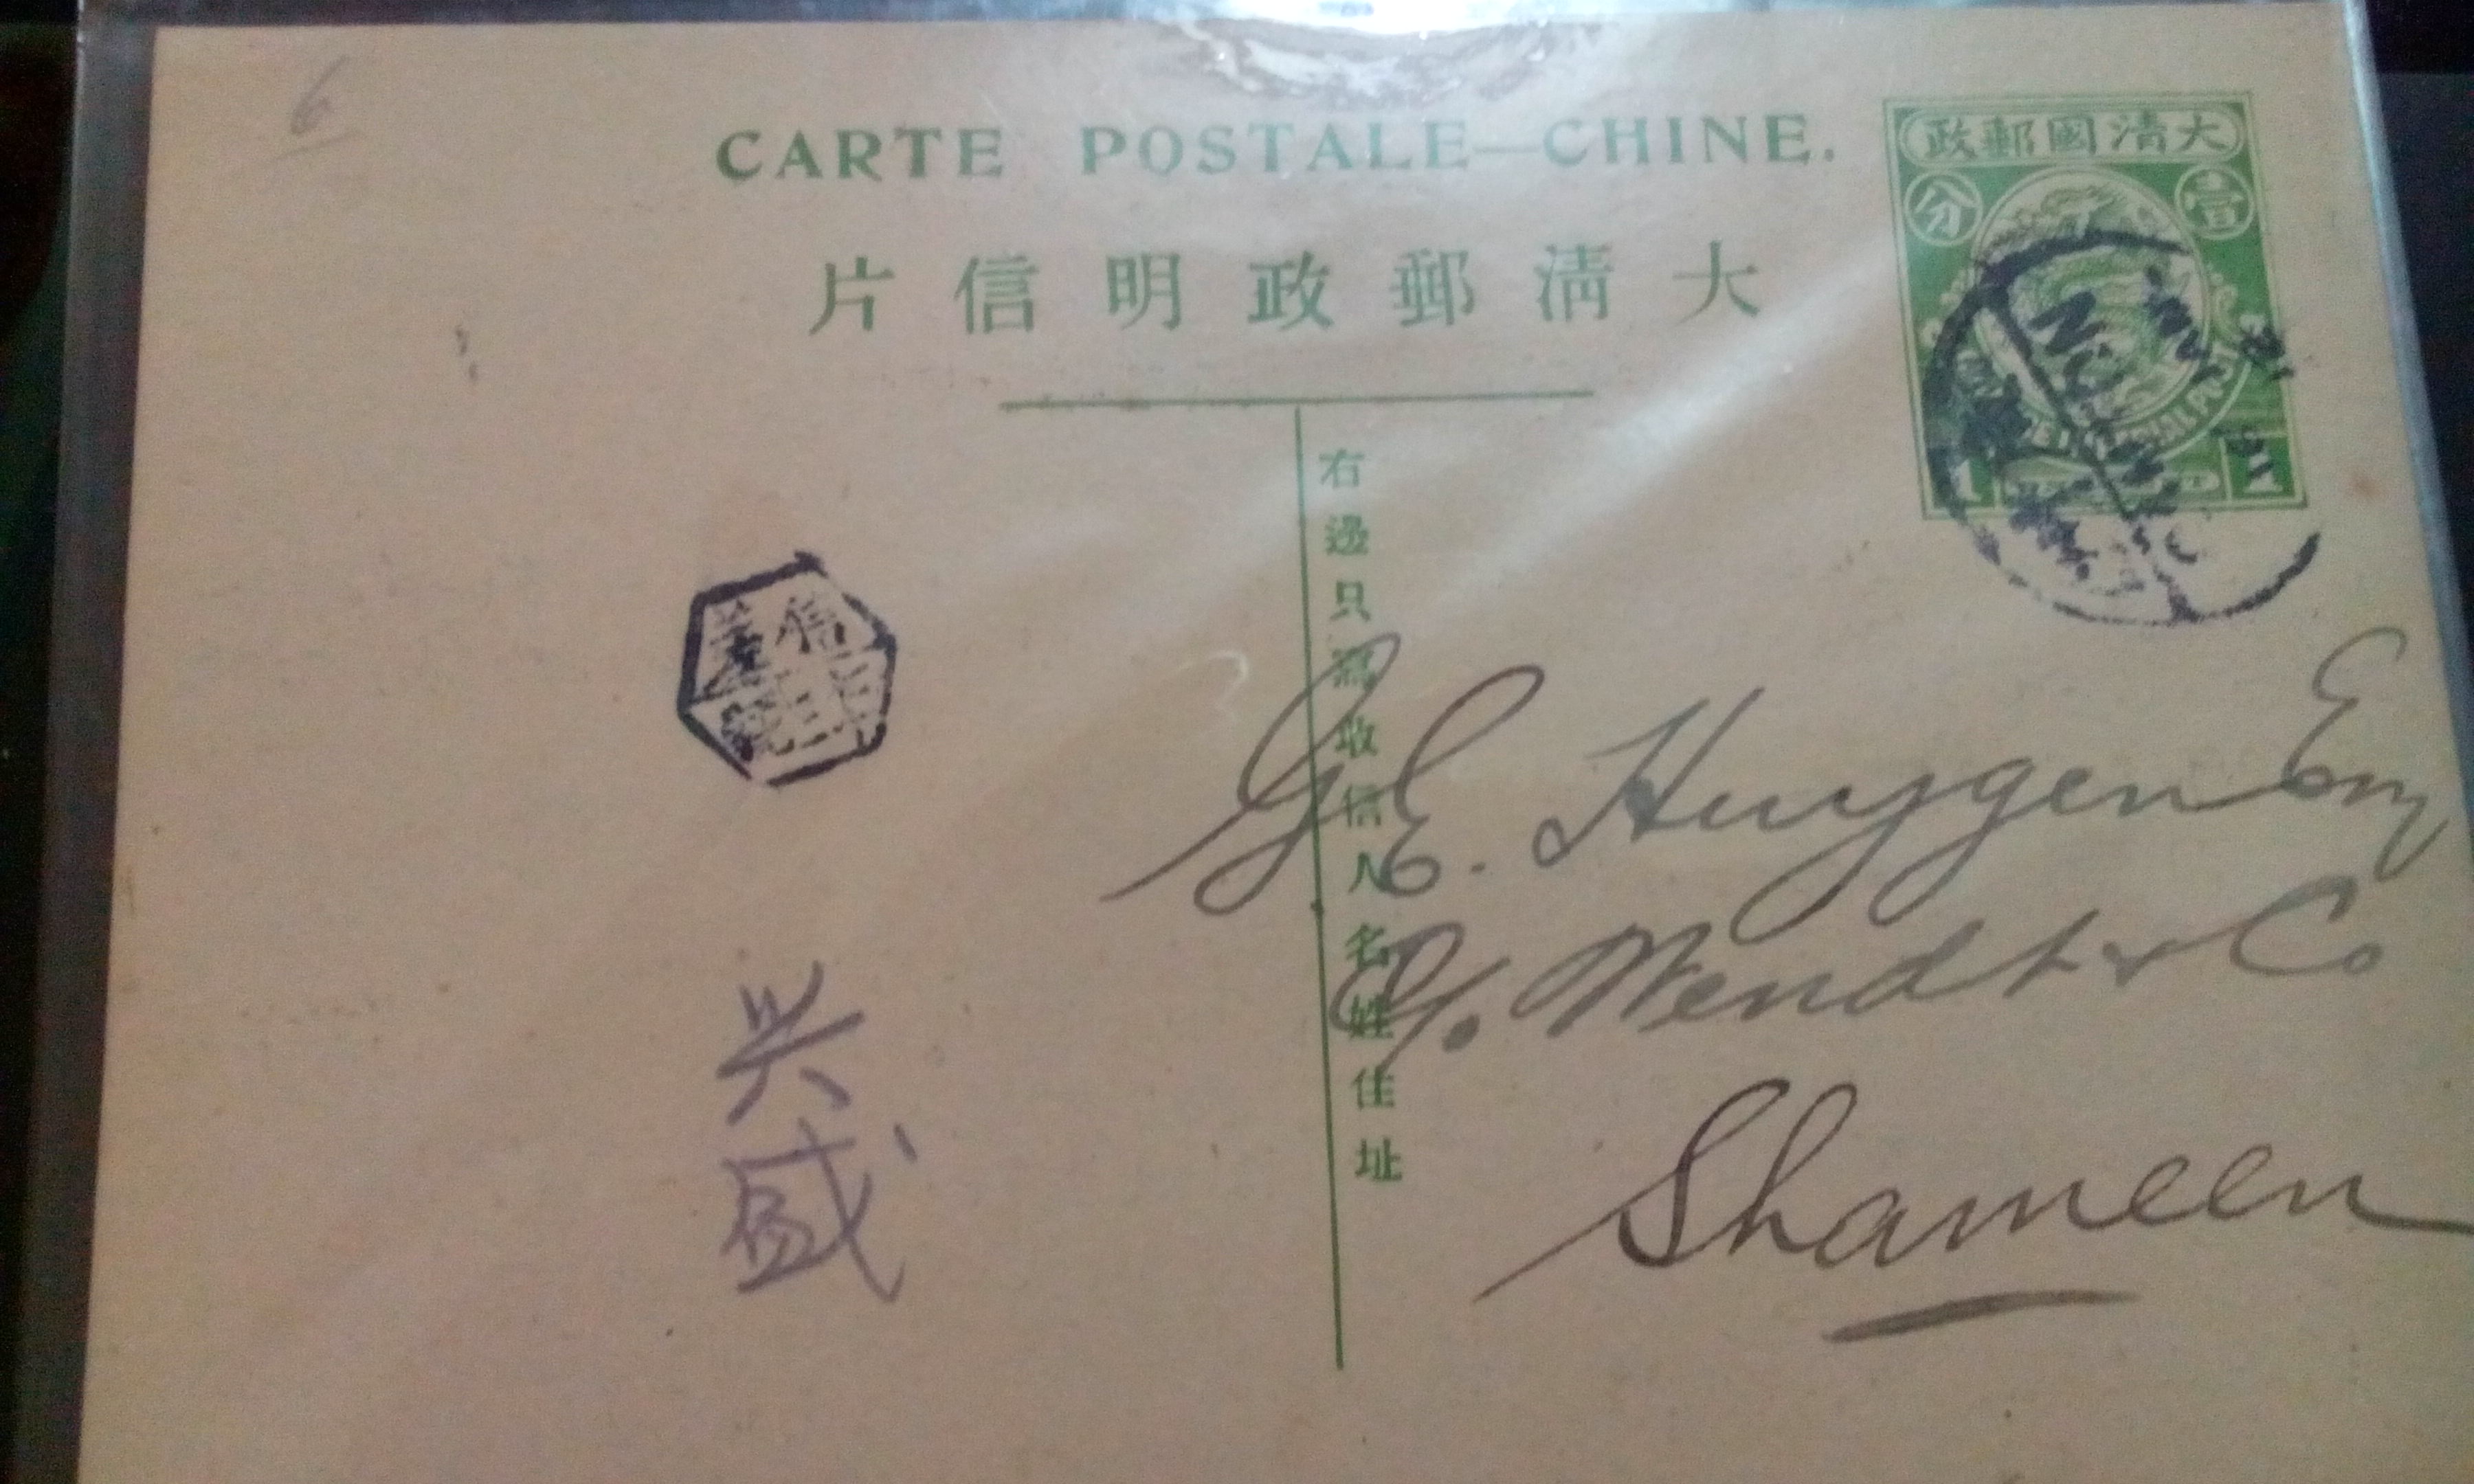 6
CARTE POSTALE—CHINE.
大清郵政明信片
大清國郵政
壹分
1 1
右邊只寫收信人名姓住址
信差
G.E. Huygen Esq
C/o. Wendt & Co
Shameen
兴盛